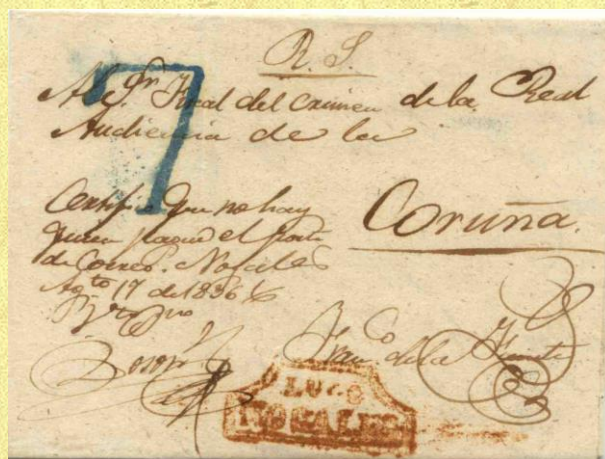 R. S.
7
Al Sr. Fiscal del crimen de la Real
Audiencia de la
Coruña.
Certifico que no hay
quien pague el porte
de Correo. Nogales
Agto 17 de 1836
Franco de la Fuente
LUGO
NOGALES